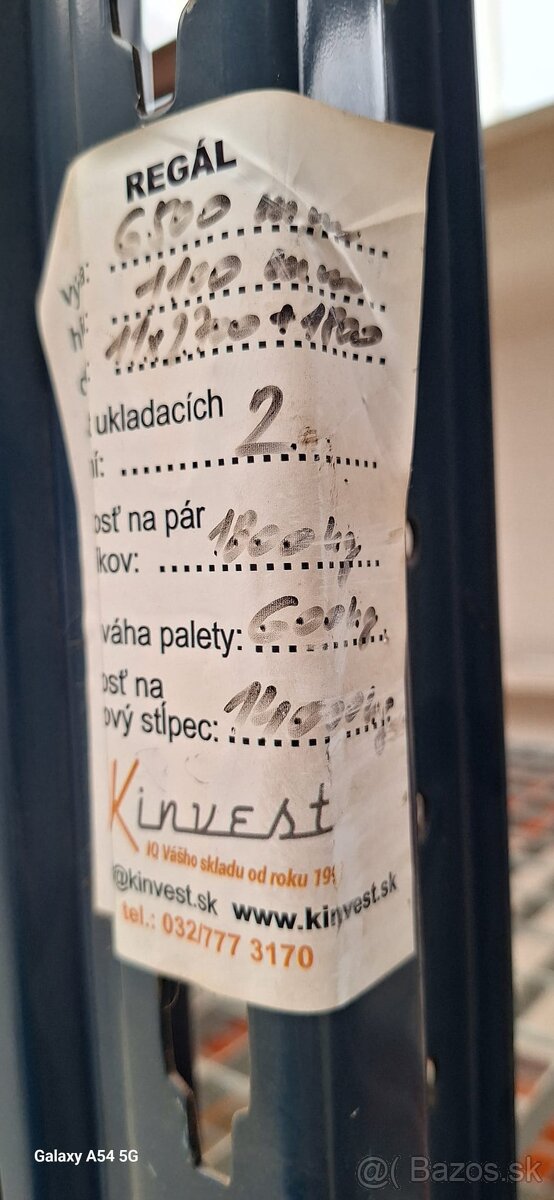 REGÁL
výš: 6.500 mm
hĺ: 1100 mm
11x2700+1800
ukladacích
ní: 2
osť na pár
íkov: 1800kg
váha palety: 600kg
osť na
ový stĺpec:
Kinvest
IQ Vášho skladu od roku 199
@kinvest.sk www.kinvest.sk
tel.: 032/777 3170
Galaxy A54 5G
@( Bazos.sk